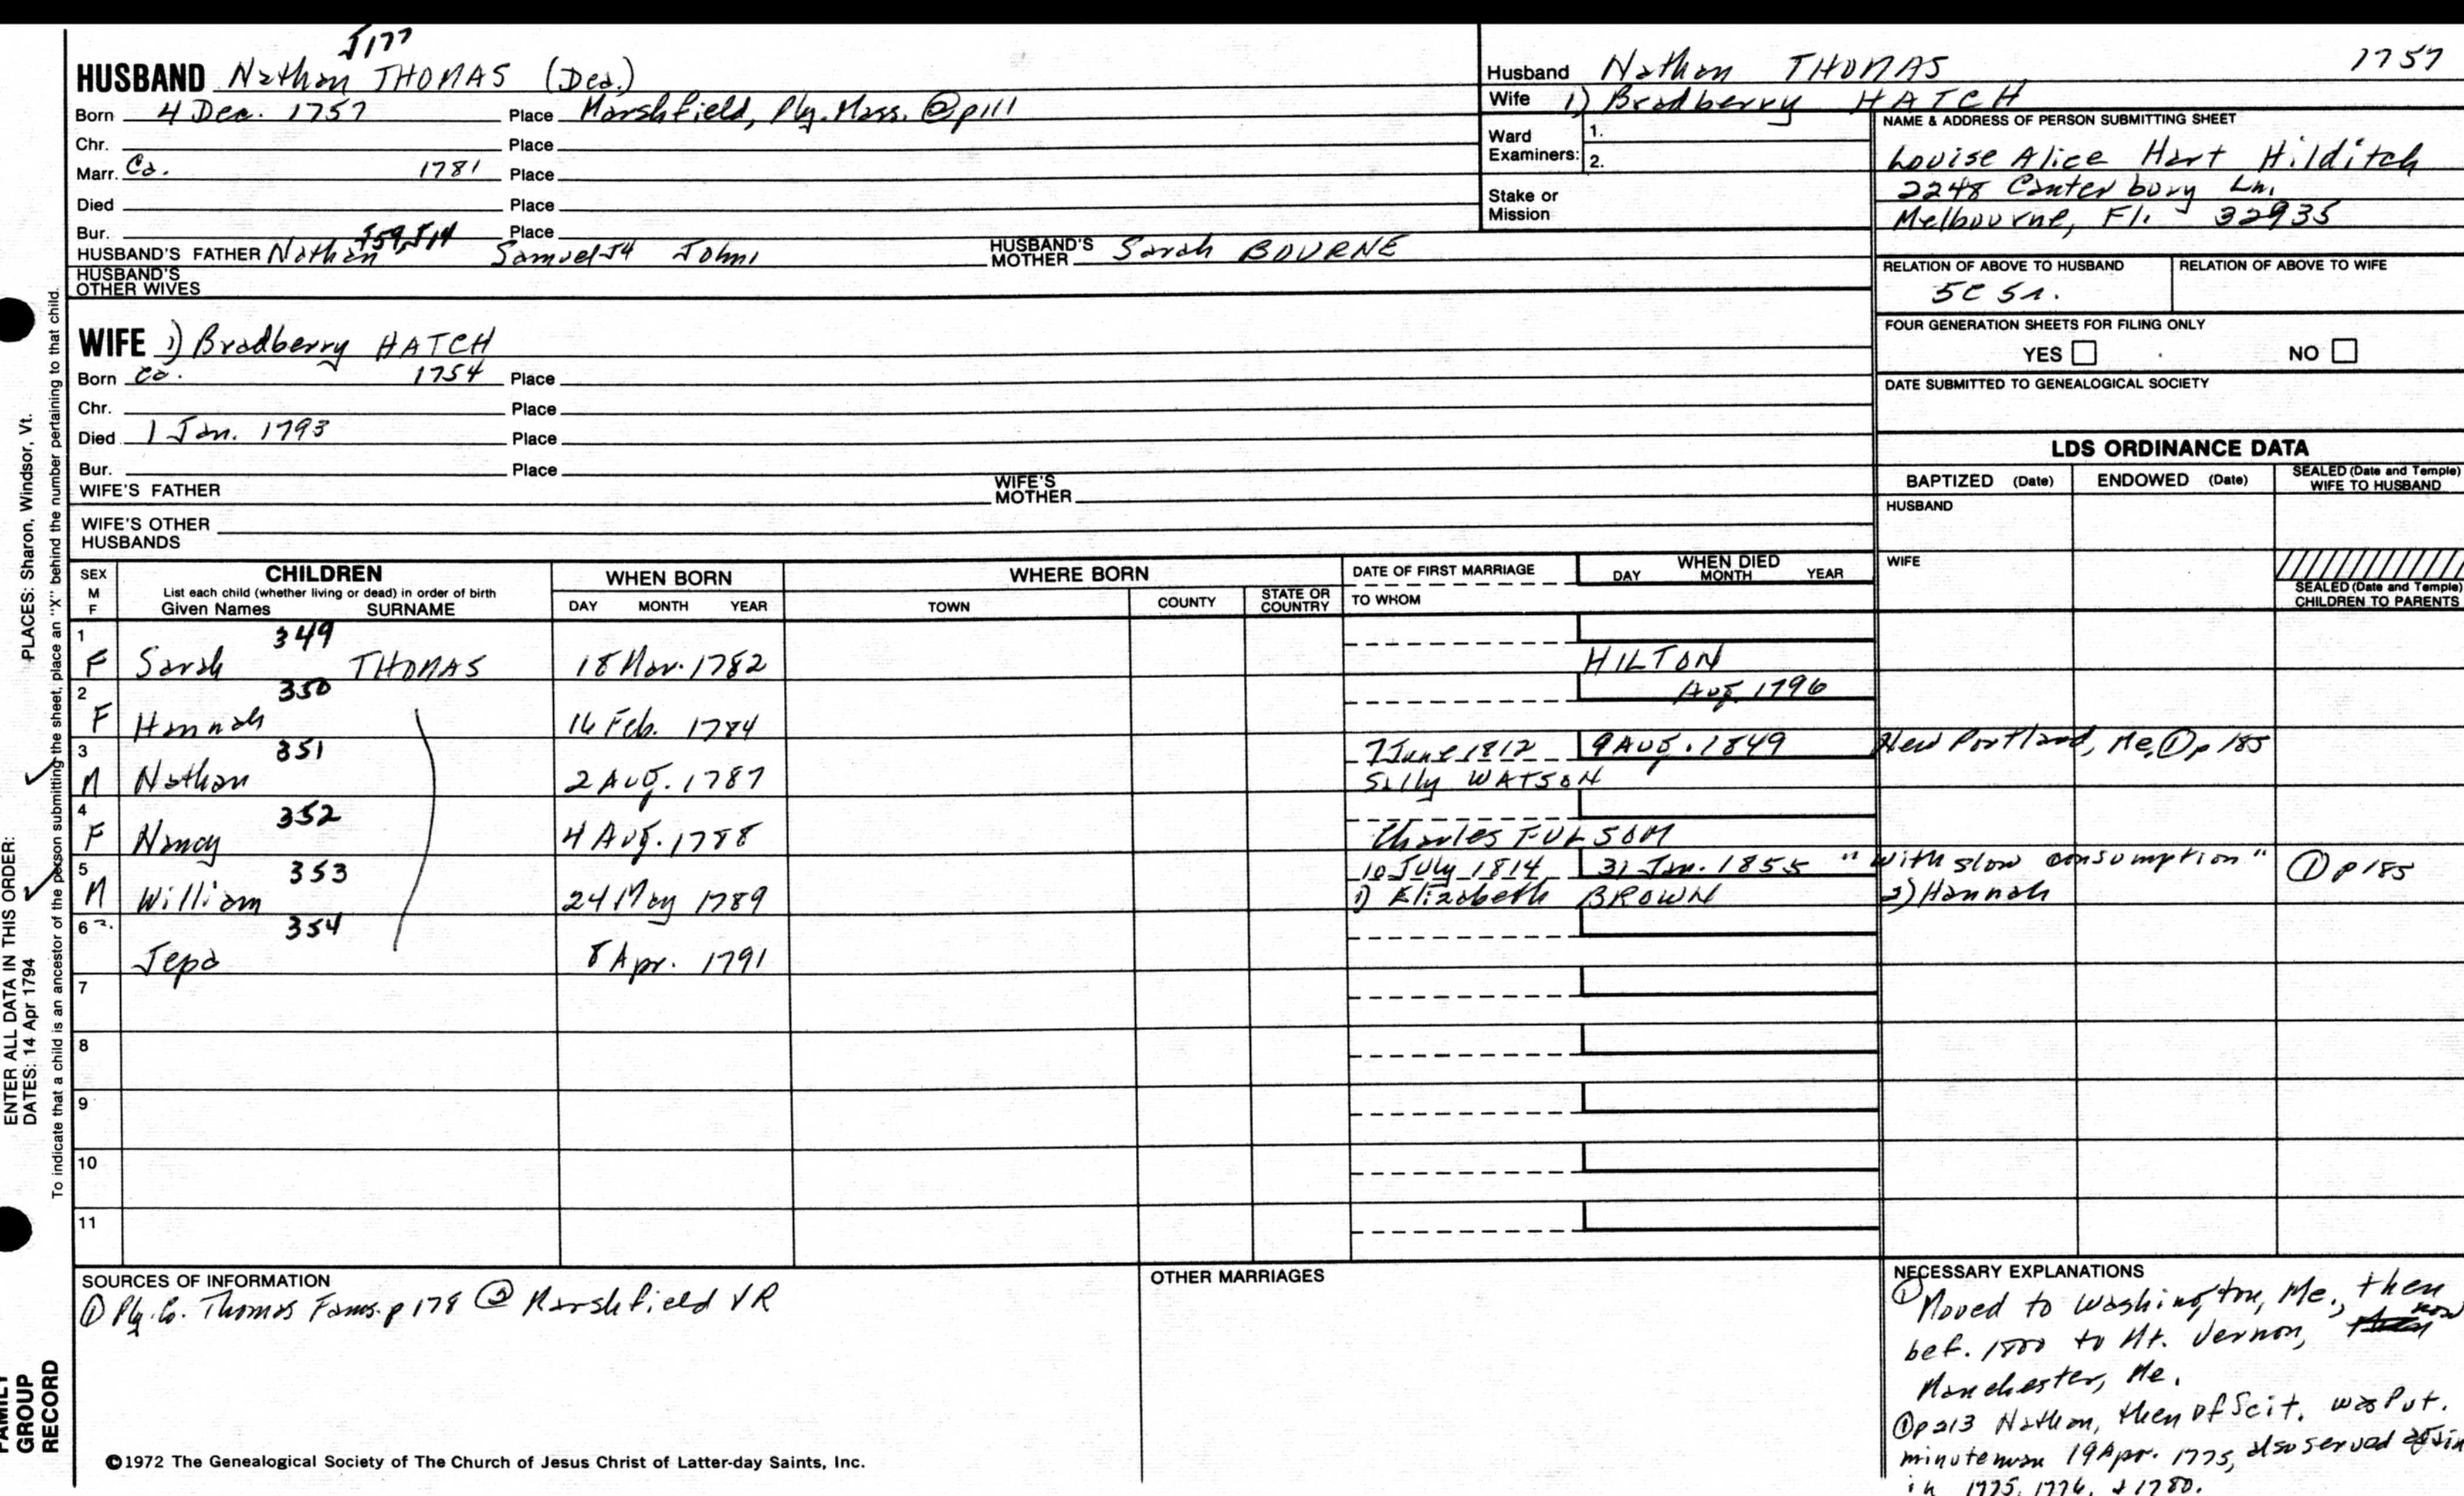 J177
HUSBAND Nathan THOMAS (Dea.)
Born 4 Dec. 1757 Place Marshfield, Ply. Mass. @p111
Chr. Place
Marr. Ca. 1781 Place
Died Place
Bur. Place
J59, J14
HUSBAND'S FATHER Nathan Samuel J4 John1 HUSBAND'S MOTHER Sarah BOURNE
HUSBAND'S OTHER WIVES
WIFE 1) Bradberry HATCH
Born Ca. 1754 Place
Chr. Place
Died 1 Jan. 1793 Place
Bur. Place
WIFE'S FATHER WIFE'S MOTHER
WIFE'S OTHER HUSBANDS
Husband Nathan THOMAS 1757
Wife 1) Bradberry HATCH
Ward Examiners: 1.
2.
Stake or Mission
NAME & ADDRESS OF PERSON SUBMITTING SHEET
Louise Alice Hart Hilditch
2248 Canterbury Ln.
Melbourne, Fl. 32935
RELATION OF ABOVE TO HUSBAND RELATION OF ABOVE TO WIFE
5C 5r.
FOUR GENERATION SHEETS FOR FILING ONLY
YES NO
DATE SUBMITTED TO GENEALOGICAL SOCIETY
LDS ORDINANCE DATA
BAPTIZED (Date) ENDOWED (Date) SEALED (Date and Temple) WIFE TO HUSBAND
HUSBAND
WIFE
SEALED (Date and Temple) CHILDREN TO PARENTS
SEX M F CHILDREN WHEN BORN WHERE BORN DATE OF FIRST MARRIAGE WHEN DIED
List each child (whether living or dead) in order of birth
Given Names SURNAME DAY MONTH YEAR TOWN COUNTY STATE OR COUNTRY TO WHOM DAY MONTH YEAR
1 349
F Sarah THOMAS 18 Mar. 1782 HILTON
2 350 Aug. 1796
F Hannah 16 Feb. 1784
3 351 7 June 1812 9 Aug. 1849 New Portland, Me. ① p 185
M Nathan 2 Aug. 1787 Sally WATSON
4 352
F Nancy 4 Aug. 1788 Charles FULSOM
5 353 10 July 1814 31 Jan. 1855 "with slow consumption" ① p 185
M William 24 May 1789 1) Elizabeth BROWN 2) Hannah
6 354
Jepa 8 Apr. 1791
7
8
9
10
11
SOURCES OF INFORMATION
① Ply. Co. Thomas Fams. p 178 ② Marshfield VR
©1972 The Genealogical Society of The Church of Jesus Christ of Latter-day Saints, Inc.
OTHER MARRIAGES
NECESSARY EXPLANATIONS
① Moved to Washington, Me., then
bef. 1800 to Mt. Vernon, now
Manchester, Me.
① p 213 Nathan, then of Scit. was Pvt.
minuteman 19 Apr. 1775, also served
in 1775, 1776, & 1780.
PLACES: Sharon, Windsor, Vt.
ENTER ALL DATA IN THIS ORDER:
DATES: 14 Apr 1794
To indicate that a child is an ancestor of the person submitting the sheet, place an "X" behind the number pertaining to that child.
FAMILY
GROUP
RECORD